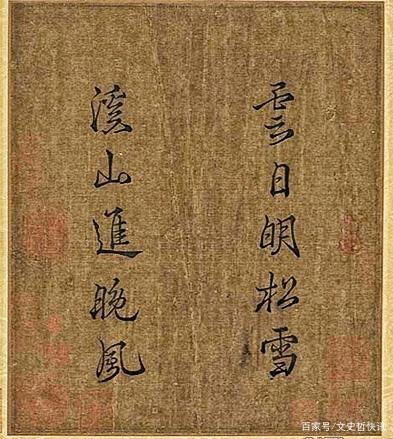 雲日明松雪
溪山進晚風
百家号/文史哲快讯